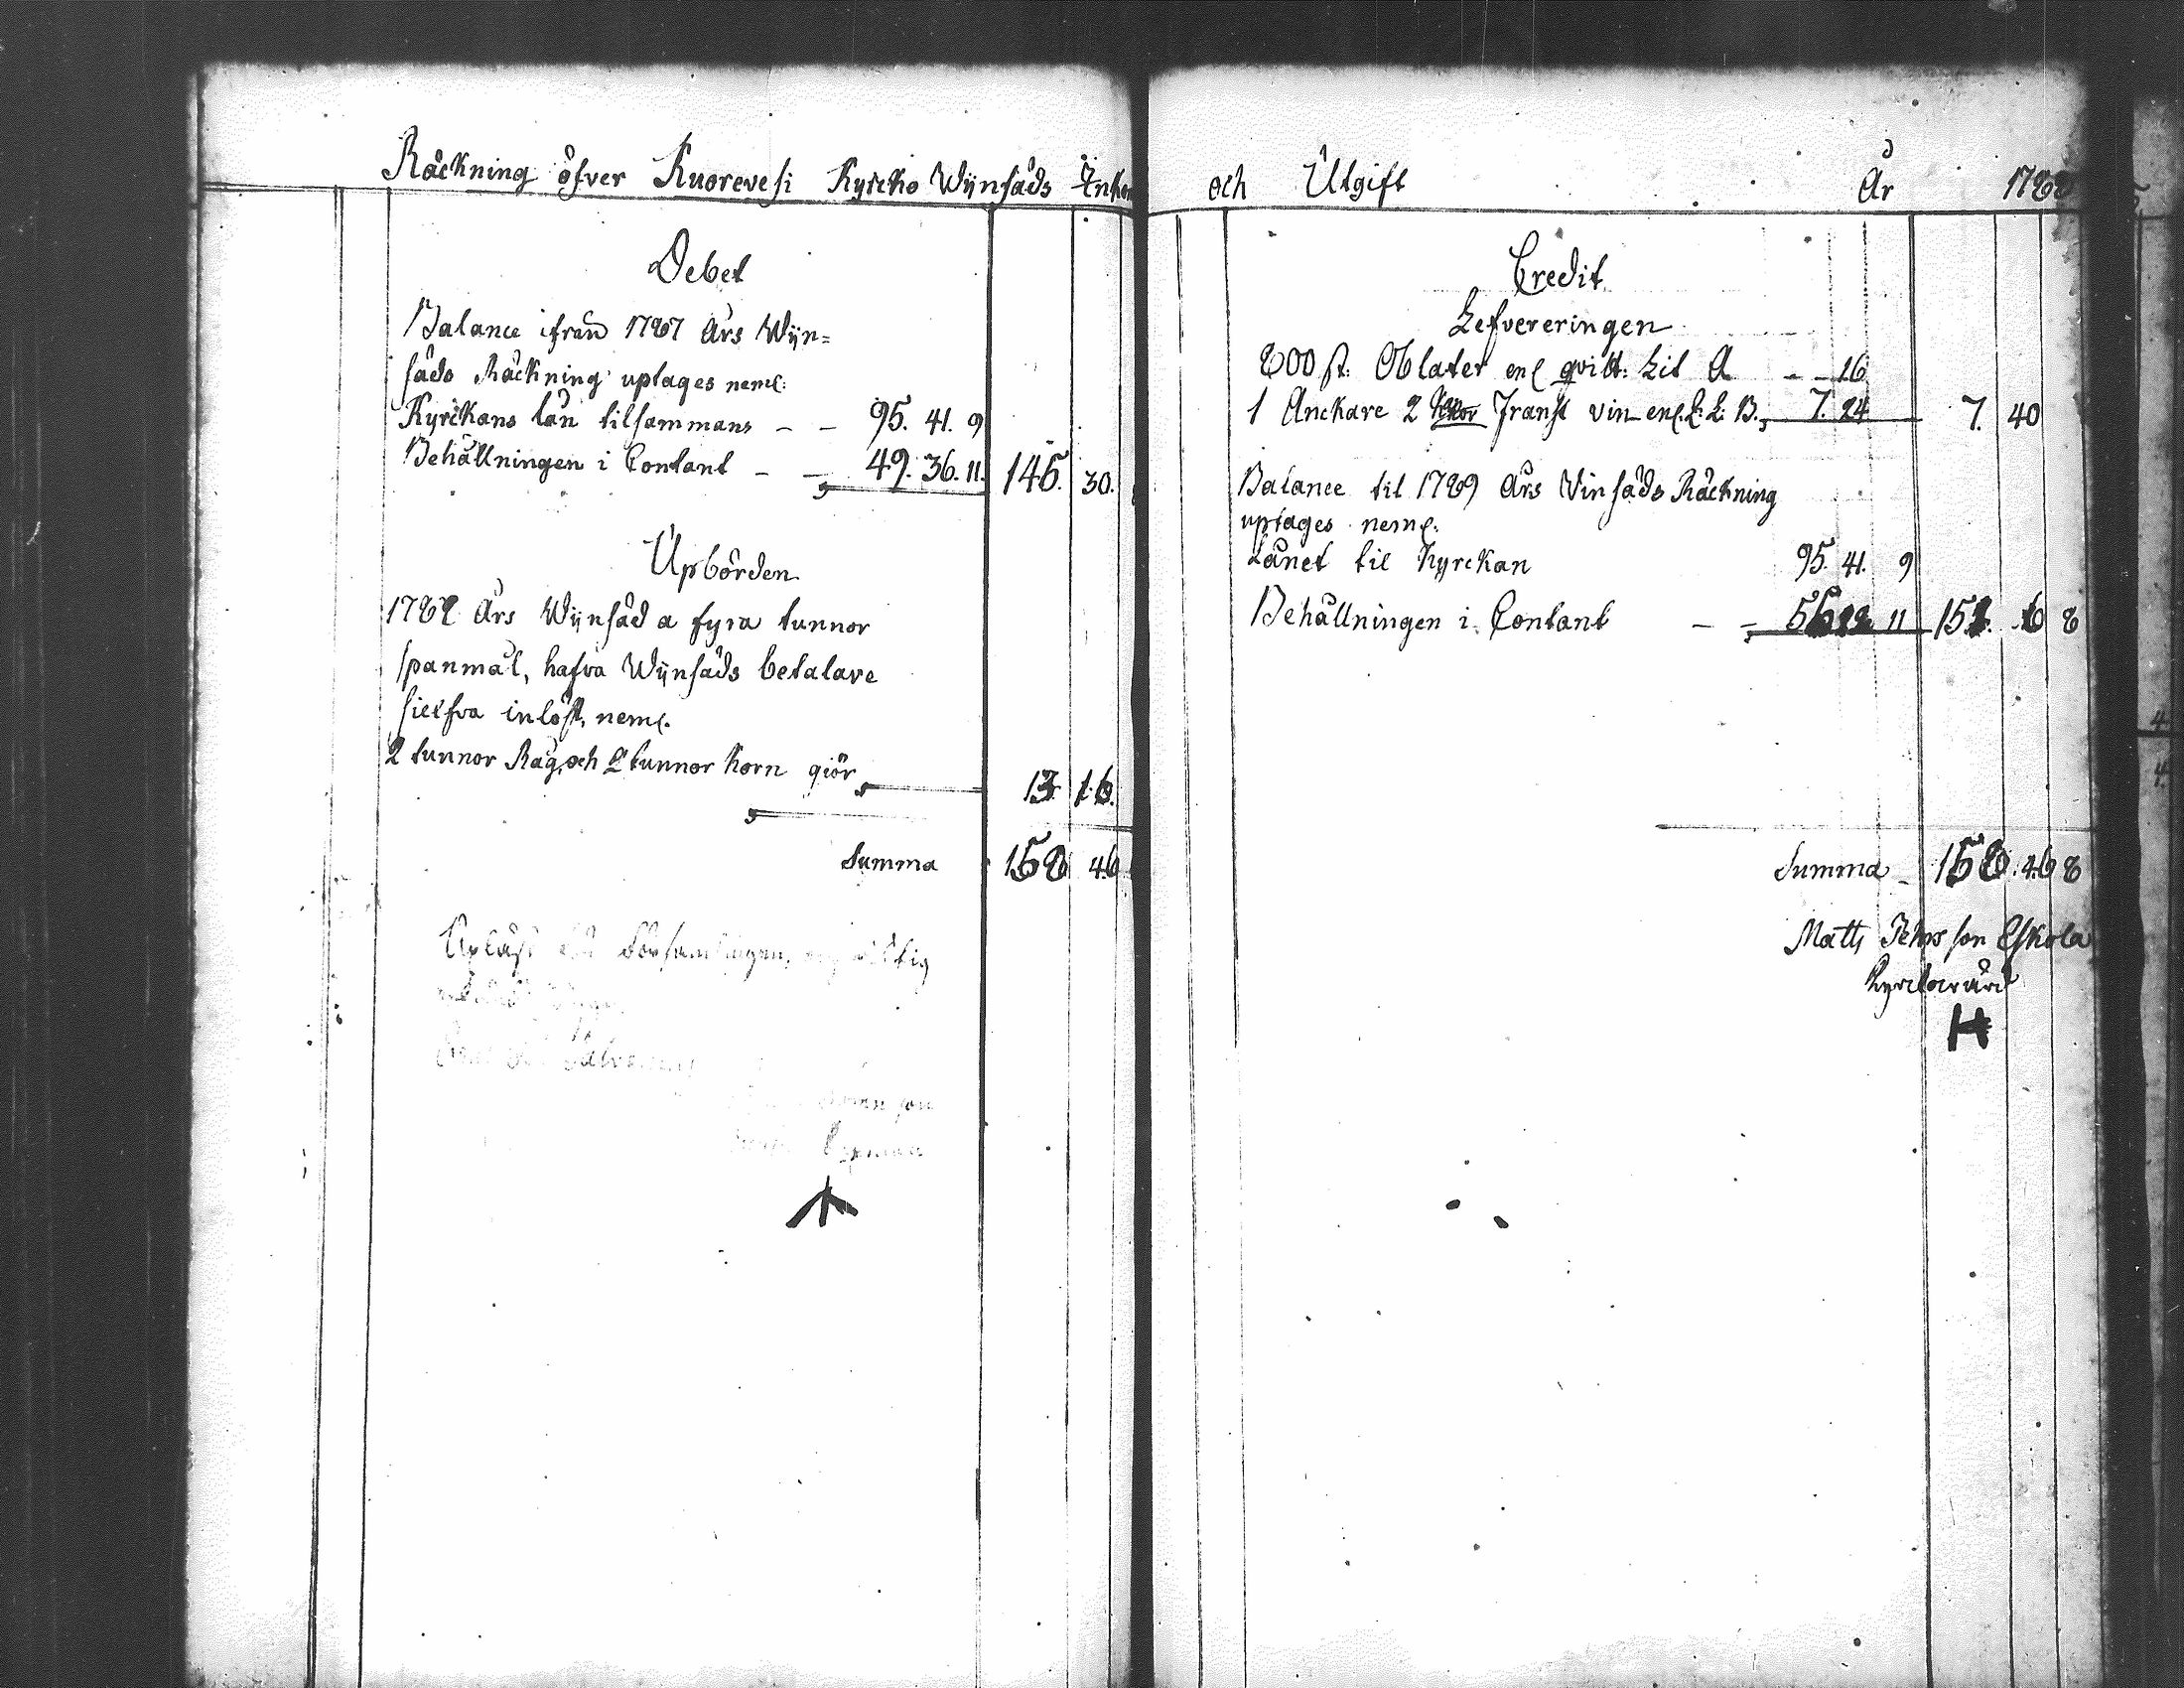 Räckning öfver Kuorevesi Kyrcko Wijnsäds Inkom
Debet
Balance ifrån 1787 Års Wijn=
säds Räckning uptages neml:
Kyrckans lån tilsammans – – 95. 41. 9
Behållningen i Contant – – 49. 36. 11. 145. 30.
Upbörden
1788 Års Wijnsäd a fyra tunnor
spanmål, hafva Wijnsäds betalare
sielfva inlöst, neml.
2 tunnor Råg, och 2 tunnor Korn giör 13 16.
Summa 158 46
Upläst för Församlingen,
och Utgift År 1788
Credit
Lefvereringen
800 st: Oblater enl qvitt: Lit A – – 16
1 Anckare 2 Kkor Franst vin enl. L: B. 7. 24 7. 40
Balance til 1789 Års Vinsäds Räckning
uptages neml.
Lånet til Kyrckan 95. 41. 9
Behållningen i Contant – – 55 12 11 151. 6 8
Summa – 158. 46 8
Matts Pehrsson Eskola
Kyrckovärd
H